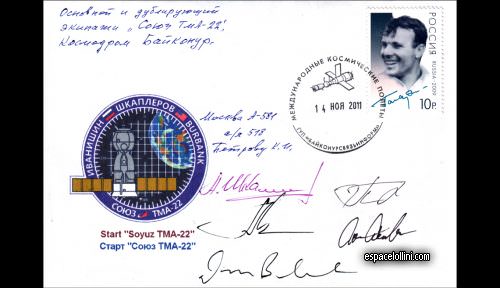 Основной и дублирующий
экипажи „Союз ТМА-22".
Космодром Байконур.
РОССИЯ
RUSSIA·2009
10р
МЕЖДУНАРОДНЫЕ КОСМИЧЕСКИЕ ПОЛЕТЫ
14 НОЯ 2011
Москва А-581
а/я 518
Петрову К.И.
ИВАНИШИН ШКАПЛЕРОВ BURBANK
СОЮЗ ТМА-22
Start "Soyuz TMA-22"
Старт "Союз ТМА-22"
espacelollini.com